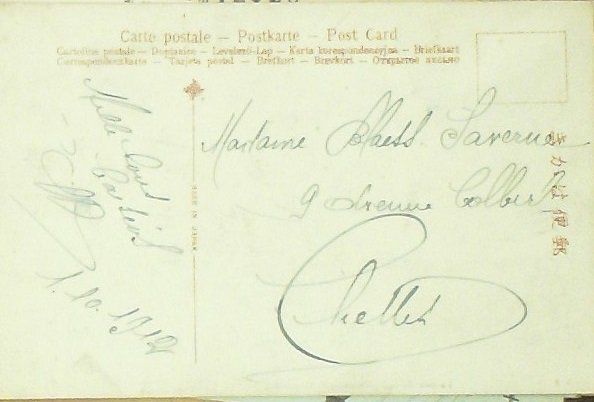 Carte postale — Postkarte — Post Card
Cartolina postale — Dopisnice — Levelező-Lap — Karta korespondencyjna — Briefkaart
Correspondenzkarte — Tarjeta postal — Brefkort — Brevkort — Открытое письмо
Mille
1.10.1912
MADE IN JAPAN
Madame Blaess Taverne
9 Avenue Colbert
Chelles
きかは便郵